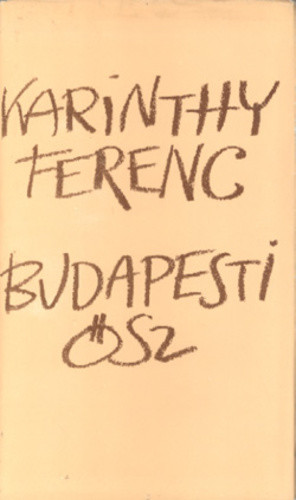 KARINTHY
FERENC
BUDAPESTI
ŐSZ